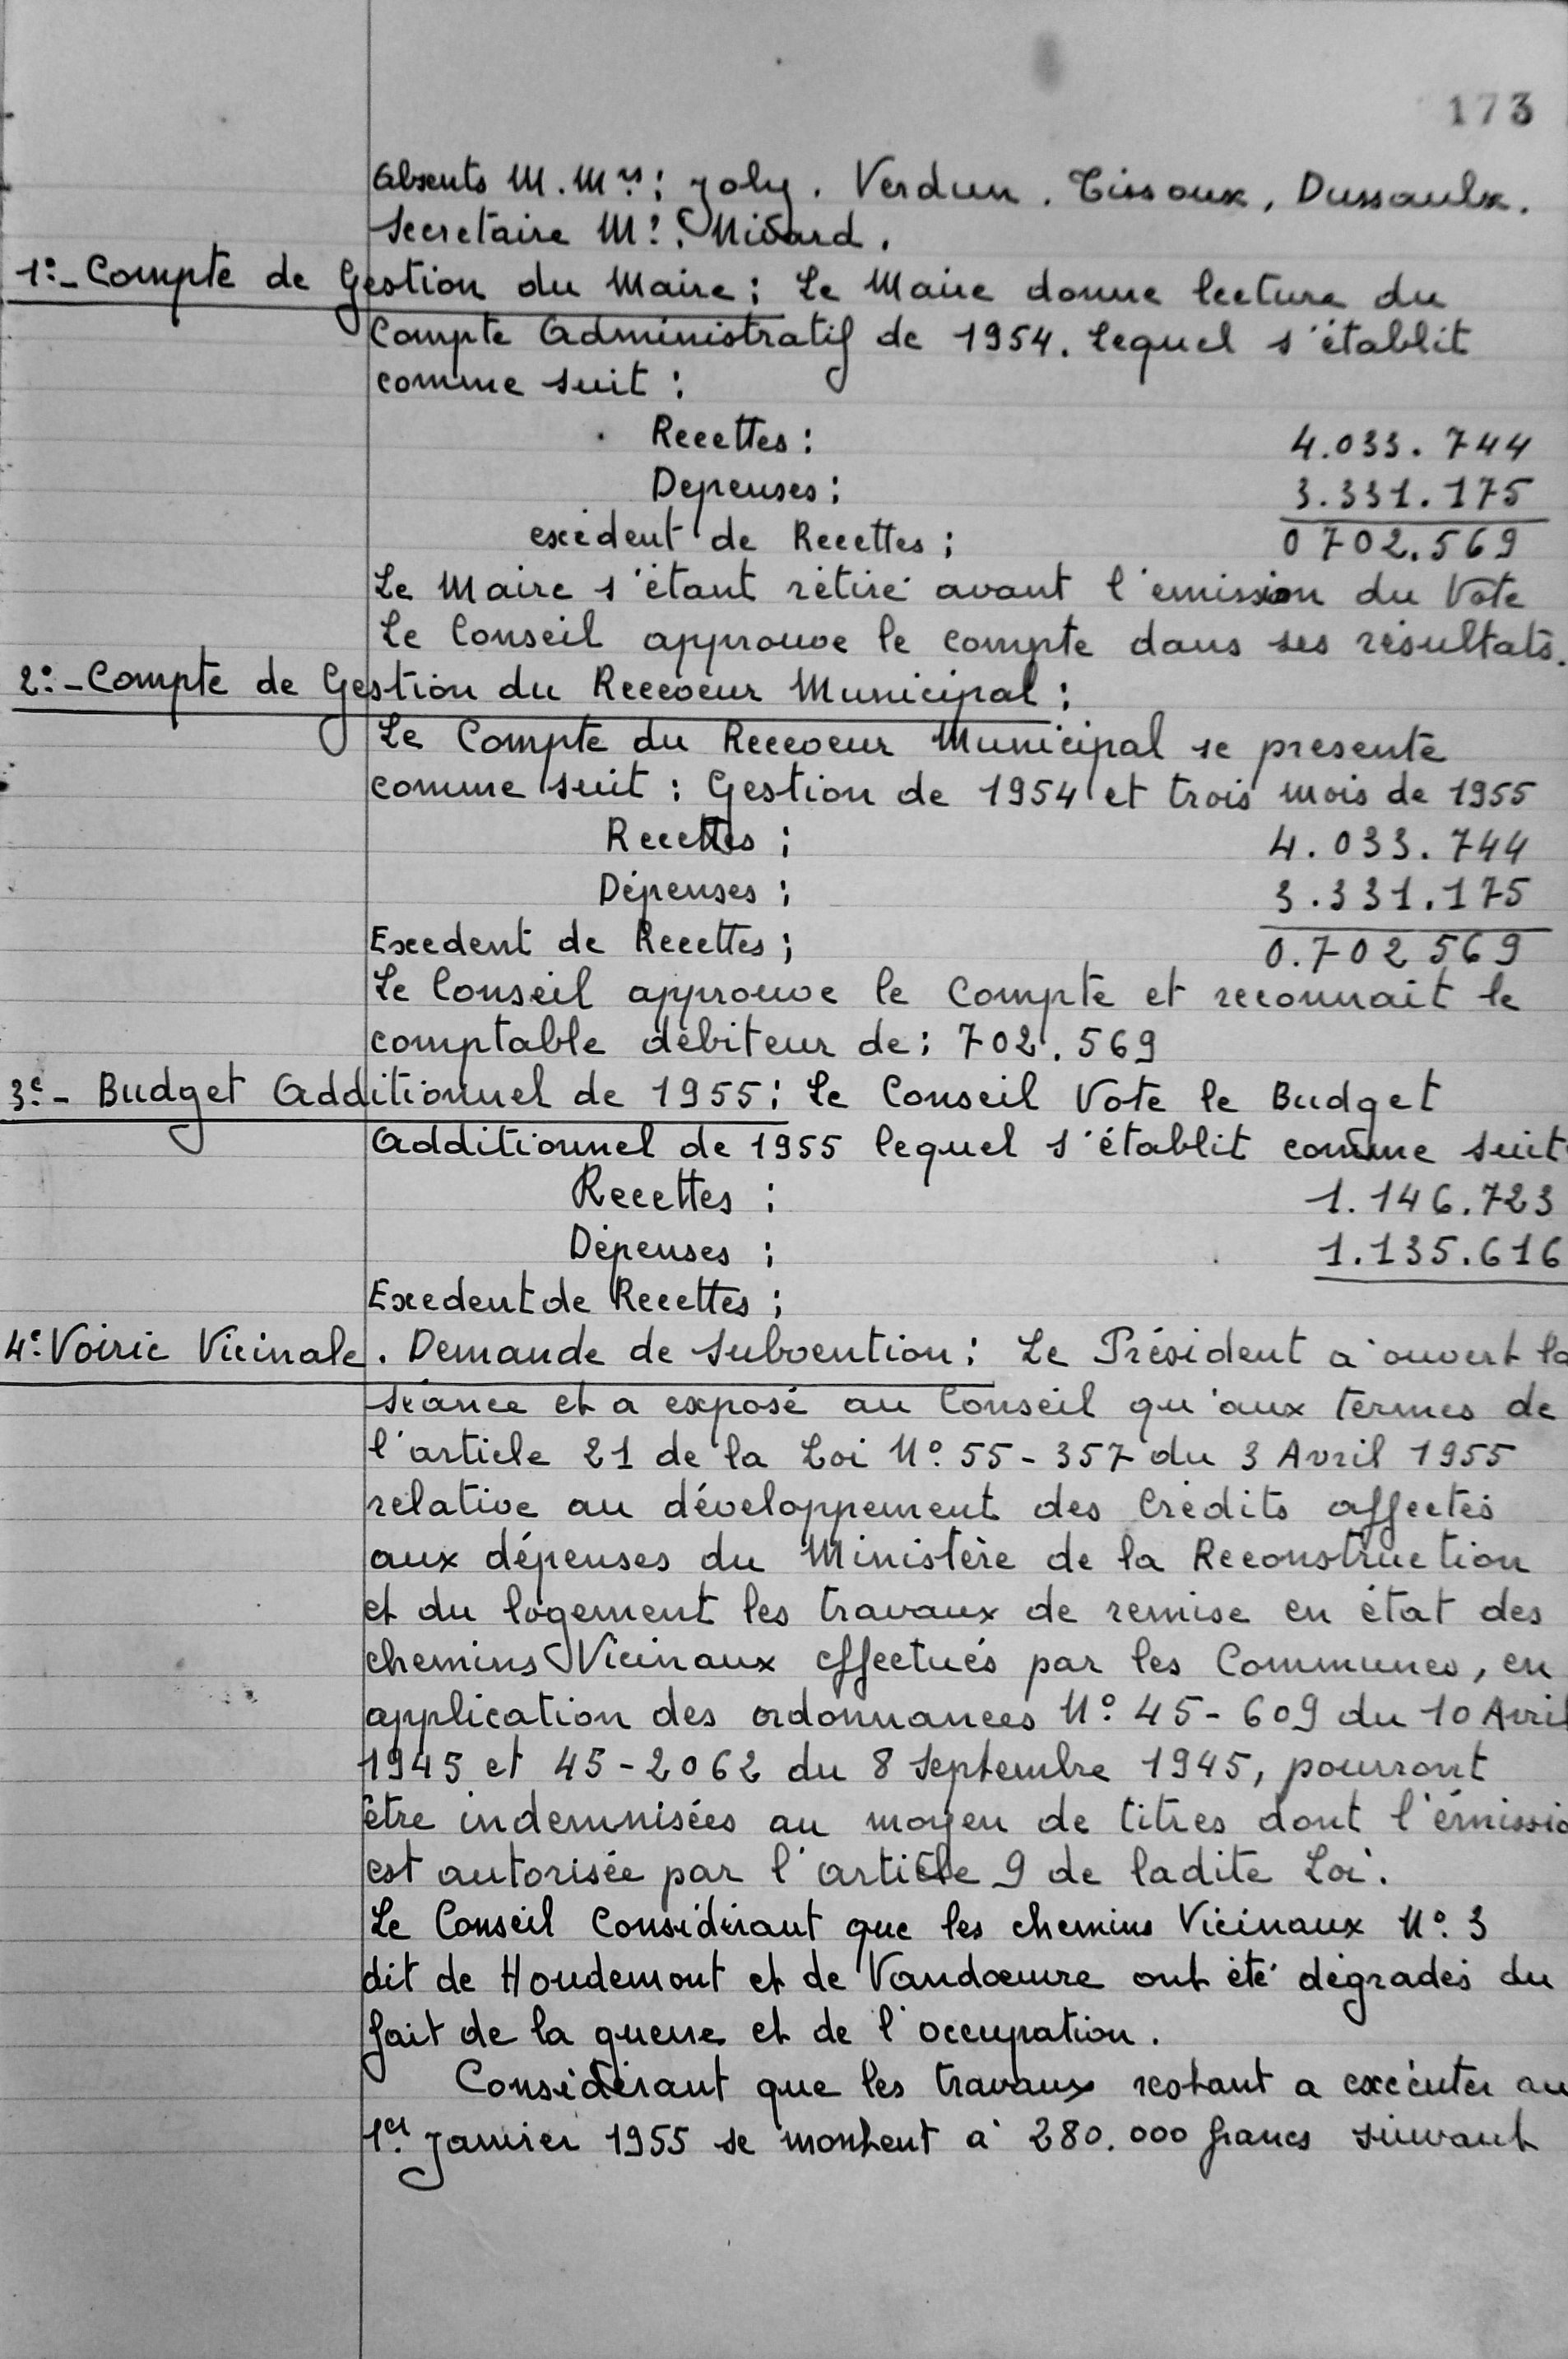 173
Absents M.Mrs : Joly. Verdun. Tissoux, Dussaulx.
Secretaire Mr. Nivard.
1°- Compte de Gestion du Maire : Le Maire donne lecture du
Compte Administratif de 1954. Lequel s'établit
comme suit :
Recettes : 4.033.744
Depenses : 3.331.175
exédent de Recettes : 0702.569
Le Maire s'étant rétiré avant l'emission du Vote
Le Conseil approuve le compte dans ses résultats.
2°- Compte de Gestion du Receveur Municipal :
Le Compte du Receveur Municipal se présente
comme suit : Gestion de 1954 et trois mois de 1955
Recettes : 4.033.744
Dépenses : 3.331.175
Exedent de Recettes : 0.702 569
Le Conseil approuve le Compte et reconnait le
comptable débiteur de : 702.569
3e- Budget Additionnel de 1955 : Le Conseil Vote le Budget
Additionnel de 1955 lequel s'établit comme suit
Recettes : 1.146.723
Dépenses : 1.135.616
Exedent de Recettes :
4e. Voirie Vicinale. Demande de Subvention : Le Président a ouvert la
séance et a exposé au Conseil qu'aux termes de
l'article 21 de la Loi N° 55-357 du 3 Avril 1955
relative au développement des Crédits affectés
aux dépenses du Ministère de la Reconstruction
et du logement les travaux de remise en état des
chemins Vicinaux effectués par les Communes, en
application des ordonnances N° 45-609 du 10 Avril
1945 et 45-2062 du 8 Septembre 1945, pourront
être indemnisées au moyen de titres dont l'émissio
est autorisée par l'article 9 de ladite Loi.
Le Conseil Considérant que les chemins Vicinaux N° 3
dit de Houdemont et de Vandœuvre ont été dégradés du
fait de la guerre et de l'occupation.
Considérant que les travaux restant a exécuter au
1er Janvier 1955 se montent à 280.000 francs suivant